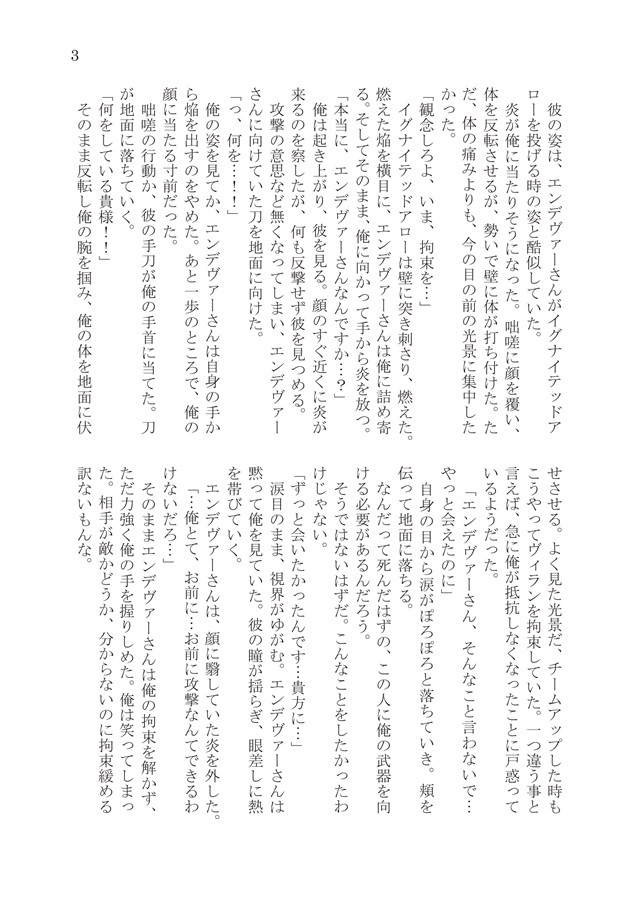 3
彼の姿は、エンデヴァーさんがイグナイテッドア
ローを投げる時の姿と酷似していた。
炎が俺に当たりそうになった。咄嗟に顔を覆い、
体を反転させるが、勢いで壁に体が打ち付けた。た
だ、体の痛みよりも、今の目の前の光景に集中した
かった。
「観念しろよ、いま、拘束を…」
イグナイテッドアローは壁に突き刺さり、燃えた。
燃えた焔を横目に、エンデヴァーさんは俺に詰め寄
る。そしてそのまま、俺に向かって手から炎を放つ。
「本当に、エンデヴァーさんなんですか…？」
俺は起き上がり、彼を見る。顔のすぐ近くに炎が
来るのを察したが、何も反撃せず彼を見つめる。
攻撃の意思など無くなってしまい、エンデヴァー
さんに向けていた刀を地面に向けた。
「っ、何を…！！」
俺の姿を見てか、エンデヴァーさんは自身の手か
ら焔を出すのをやめた。あと一歩のところで、俺の
顔に当たる寸前だった。
咄嗟の行動か、彼の手刀が俺の手首に当てた。刀
が地面に落ちていく。
「何をしている貴様！！」
そのまま反転し俺の腕を掴み、俺の体を地面に伏
せさせる。よく見た光景だ、チームアップした時も
こうやってヴィランを拘束していた。一つ違う事と
言えば、急に俺が抵抗しなくなったことに戸惑って
いるようだった。
「エンデヴァーさん、そんなこと言わないで…
やっと会えたのに」
自身の目から涙がぽろぽろと落ちていき。頬を
伝って地面に落ちる。
なんだって死んだはずの、この人に俺の武器を向
ける必要があるんだろう。
そうではないはずだ。こんなことをしたかったわ
けじゃない。
「ずっと会いたかったんです…貴方に…」
涙目のまま、視界がゆがむ。エンデヴァーさんは
黙って俺を見ていた。彼の瞳が揺らぎ、眼差しに熱
を帯びていく。
エンデヴァーさんは、顔に翳していた炎を外した。
「…俺とて、お前に…お前に攻撃なんてできるわ
けないだろ…」
そのままエンデヴァーさんは俺の拘束を解かず、
ただ力強く俺の手を握りしめた。俺は笑ってしまっ
た。相手が敵かどうか、分からないのに拘束緩める
訳ないもんな。